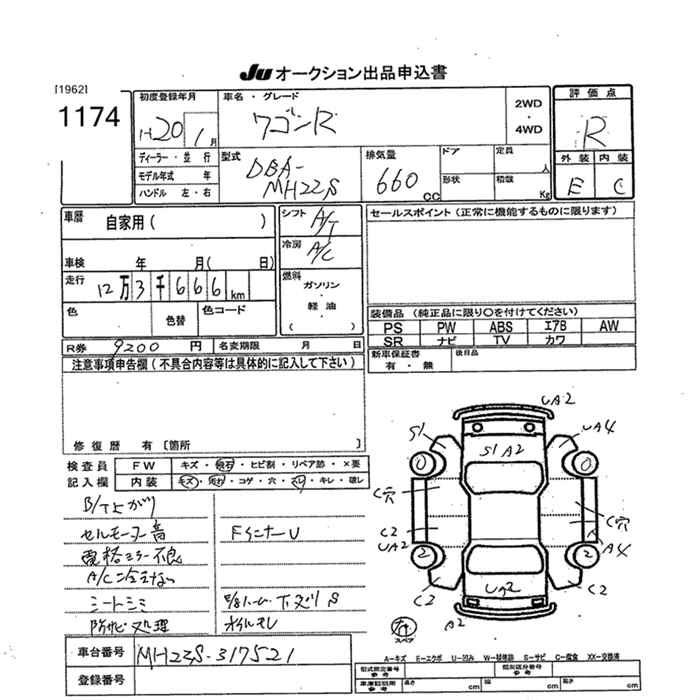 Ju オークション出品申込書
[1962]
1174
初度登録年月
H20 1月
ディーラー・並行
モデル年式 年
ハンドル 左・右
車名・グレード
ワゴンR
2WD
・
4WD
型式
DBA-
MH22S
排気量
660
CC
ドア
形状
定員
人
積載
Kg
評価点
R
外装 内装
E C
車歴
自家用( )
車検 年 月( 日)
走行
12万3千666km
色
色替
色コード
シフト
A/T
冷房
A/C
燃料
ガソリン
・
軽油
( )
セールスポイント(正常に機能するものに限ります)
装備品(純正品に限り○を付けてください)
PS PW ABS エアB AW
SR ナビ TV カワ
新車保証書
有・無
後日品
R券 9200 円
名変期限 月 日
注意事項申告欄(不具合内容等は具体的に記入して下さい)
修復歴 有[箇所 ]
検査員
記入欄
FW キズ・飛石・ヒビ割・リペア跡・×要
内装 キズ・汚れ・コゲ・穴・スレ・キレ・破レ
B/T上がり
セルモーター音
電格ミラー不良
A/C冷えない
シートシミ
防サビ処理
FインナーU
下文リS
オイルモレ
UA2
S1
UA4
S1 A2
0
0
C穴
C穴
C2
UA2
R
A4
2
2
C2
C2
UA2
A2
有
スペア
A-キズ E-エクボ U-凹み W-補修跡 S-サビ C-腐食 XX-交換済
車台番号
MH22S-317521
登録番号
型式指定番号
参考
類別区分番号
参考
車庫証明用
参考
長さ cm
幅 cm
高さ cm